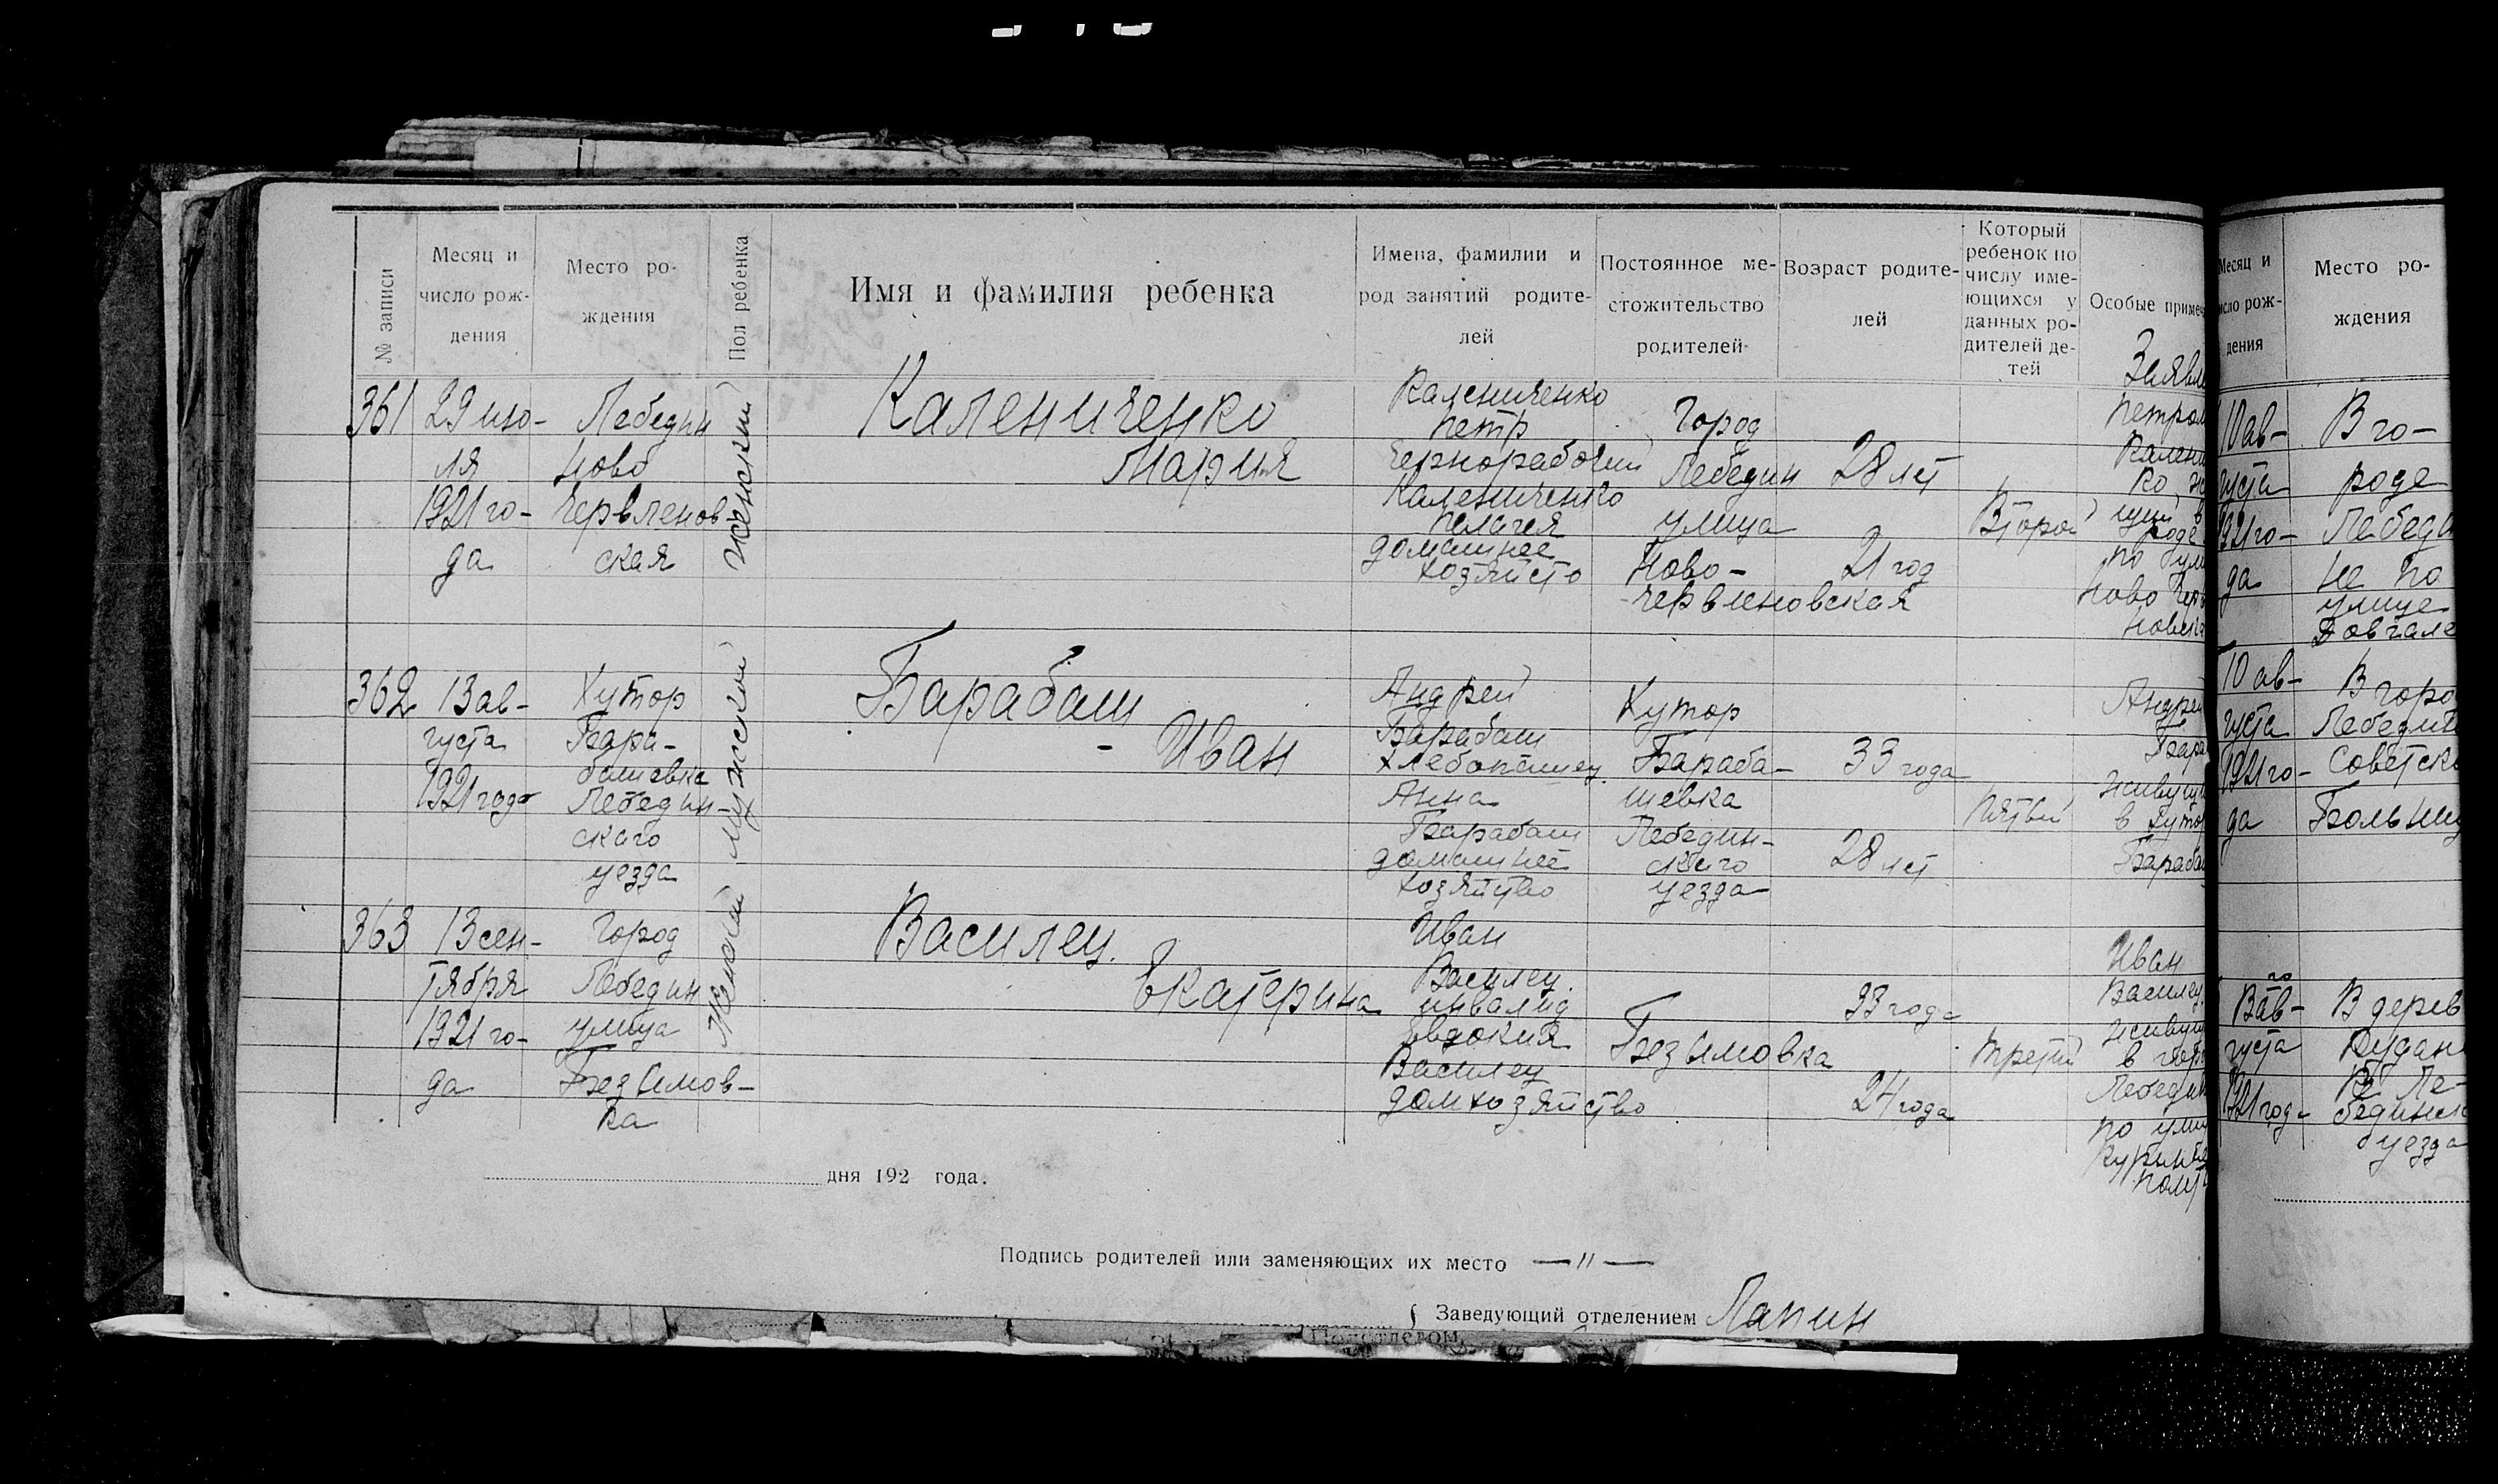 № записи
Месяц и
число рож-
дения
Место ро-
ждения
Пол ребенка
Имя и фамилия ребенка
Имена, фамилии и
род занятий родите-
лей
Постоянное ме-
стожительство
родителей
Возраст родите-
лей
Который
ребенок по
числу име-
ющихся у
данных ро-
дителей де-
тей
Особые примеч
361
29 ию-
ля
1921 го-
да
Лебедин
Ново
Червленов-
ская
женский
Калениченко
Мария
Калениченко
Петр
Чернорабочий
Калениченко
Пелагея
домашнее
хозяйсто
Город
Лебедин
улица
Ново-
Червленовская
28 лет
21 год
Второй
Заявл
Петром
Калени
ко, ж
щий в
роде
по ули
Ново Черв
362
13 ав-
густа
1921 года
Хутор
Бара-
башевка
Лебедин-
ского
уезда
мужской
Барабаш
- Иван
Андрей
Барабаш
хлебопашец
Анна
Барабаш
домашнее
хозяйство
Хутор
Бараба-
шевка
Лебедин-
ского
уезда
33 года
28 лет
Пятый
Андрей
Бара
живущ
в хутор
Бараба
363
13 сен-
тября
1921 го-
да
Город
Лебедин
улица
Безимов-
ка
женский
Василец
Екатерина
Иван
Василец
инвалид
Евдокия
Василец
дом хозяйство
Безимовка
33 года
24 года
третий
Иван
Василец
живущ
в гор
Лебедин
по ули
дня 192 года.
Подпись родителей или заменяющих их место — " —
Заведующий отделением Лапин
Месяц и
число рож-
дения
Место ро-
ждения
10 ав-
густа
1921 го-
да
В го-
роде
Лебеди
не по
улице
Довгале
10 ав-
густа
1921 го-
да
В горо
Лебедин
Советск
Больниц
ав-
густа
1921 год
В дерев
Ле-
бединск
уезда